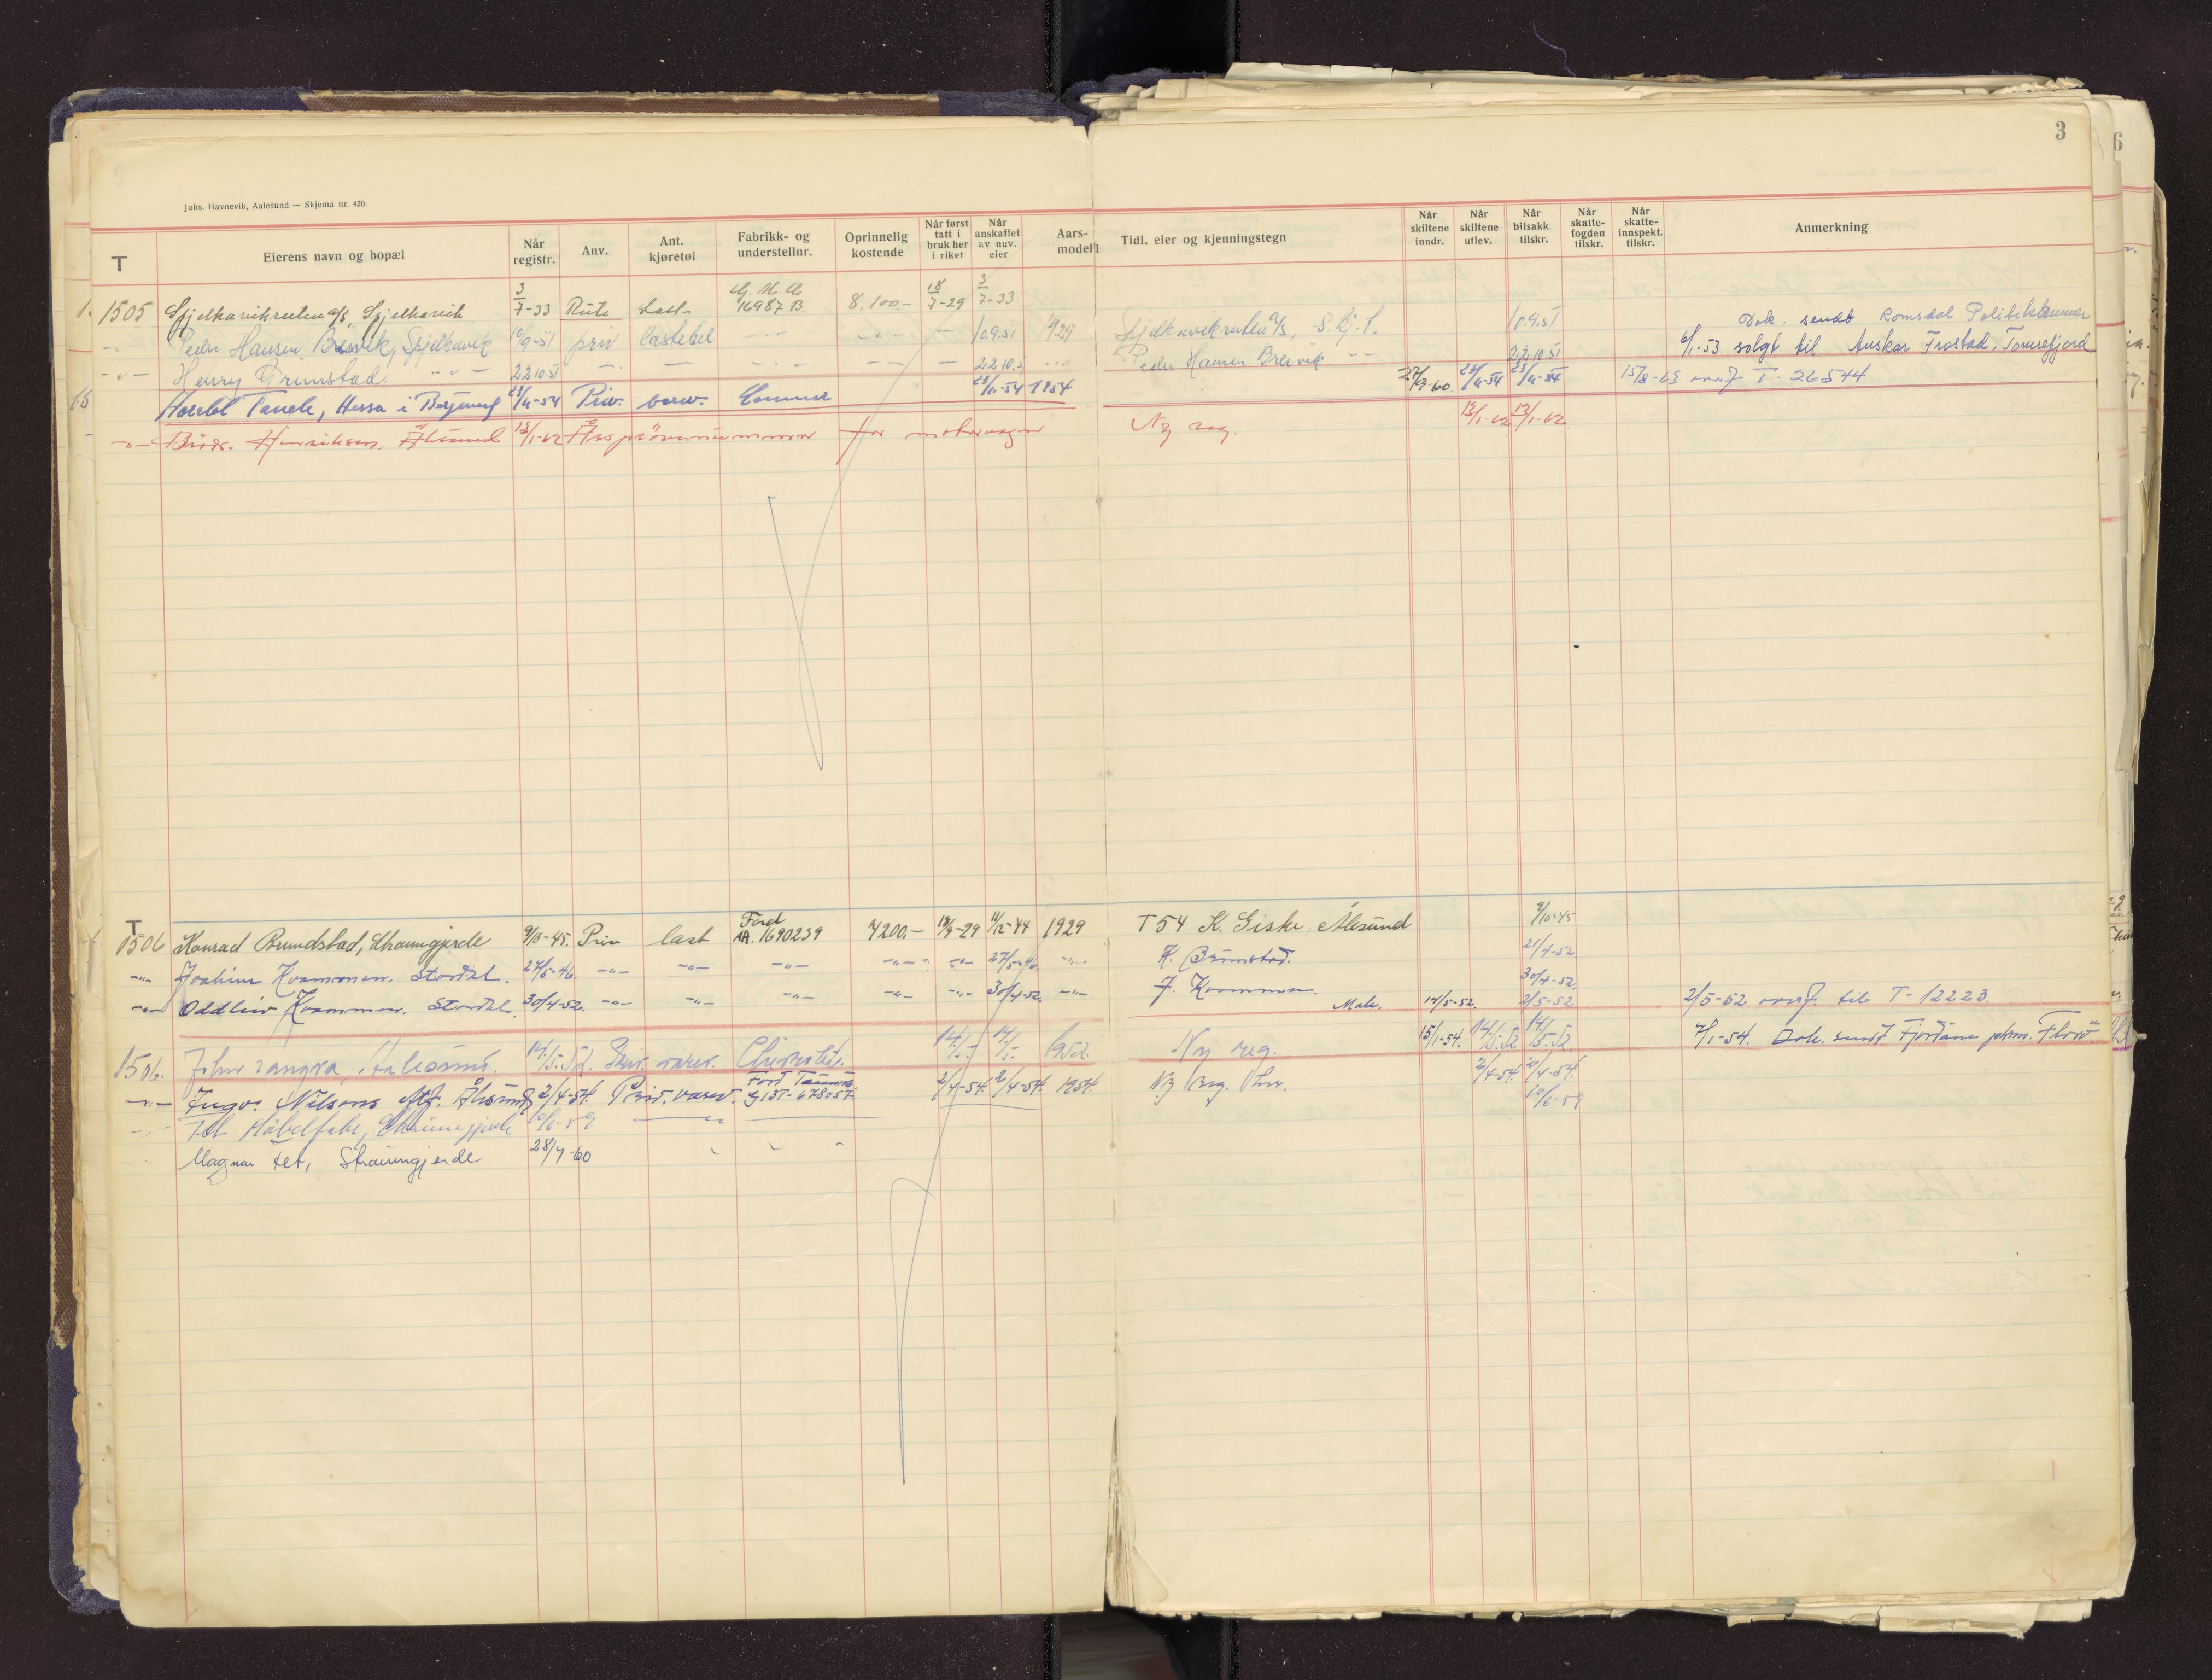 3
6
Johs. Havnevik, Aalesund — Skjema nr. 420.
T Eierens navn og bopæl Når registr. Anv. Ant. kjøretøi Fabrikk- og understellnr. Oprinnelig kostende Når først tatt i bruk her i riket Når anskaffet av nuv. eier Aars-modell Tidl. eier og kjenningstegn Når skiltene inndr. Når skiltene utlev. Når bilsakk. tilskr. Når skatte-fogden tilskr. Når skatte-innspekt. tilskr. Anmerkning
1505 Spjelkavikruten a/s, Spjelkavik 3/7-33 Rute Last- G.M.C. 16987 B 8.100.- 18/7-29 3/7-33
Dok. sendt Romsdal Politikammer
-"- Peder Hansen Brevik, Spjelkavik 10/9-51 priv lastebil 10.9.51 1929 Spjelkavikruten a/s, 10.9.51 6/1-53 solgt til Anskar Frostad, Tomrefjord
-"- Henry Grimstad -"- 22.10.51 22.10.5 Peder Hansen Brevik -"- 22.10.51
Harald Tande, Hessa i Borgund 23/4-54 Priv. varev. Commer 23/4-54 1954 27/9-60 23/4-54 23/4-54 15/8-63 overf T-26544
-"- Brødr. Henriksen, Ålesund 13/1-62 Årsprøvenummer for motorvogn Ny reg. 13/1-62 13/1-62
T 1506 Konrad Brundstad, Straumgjerde 9/10-45. Priv last Ford AA. 1690239 4200.- 18/9-29 11/12-44 1929 T54 K. Giske Ålesund 9/10-45
-"- Joakim Kvammen, Stordal. 27/5-46. -"- -"- -"- -"- -"- 27/5-46 -"- K. Brunstad. 21/4-52
-"- Oddleiv Kvammen, Stordal. 30/4-52. -"- -"- -"- -"- -"- 30/4-52. -"- J. Kvammen. 30/4-52
14/5-52. 2/5-52 2/5-52 overf. til T-12223.
1506. John Langva, Aalesund. 14/5.52. Priv. varev. Chevrolet. 14/5- 14/5- 1952. Ny reg. 15/1-54. 14/5.52 14/5-52. 7/1-54. Dok. sendt Fjordane pkm. Florø
-"- Ingv. Nilsens eftf. Ålesund 2/4-54. Priv. varev. Ford Taunus G13T-678057. 2/4-54. 2/4-54. 1954. Ny reg. 2/4-54. 2/4-54.
-"- Møbelfabr., Straumgjerde 10/6-59 10/6-59
Magnar Tet, Straumgjerde 28/7-60